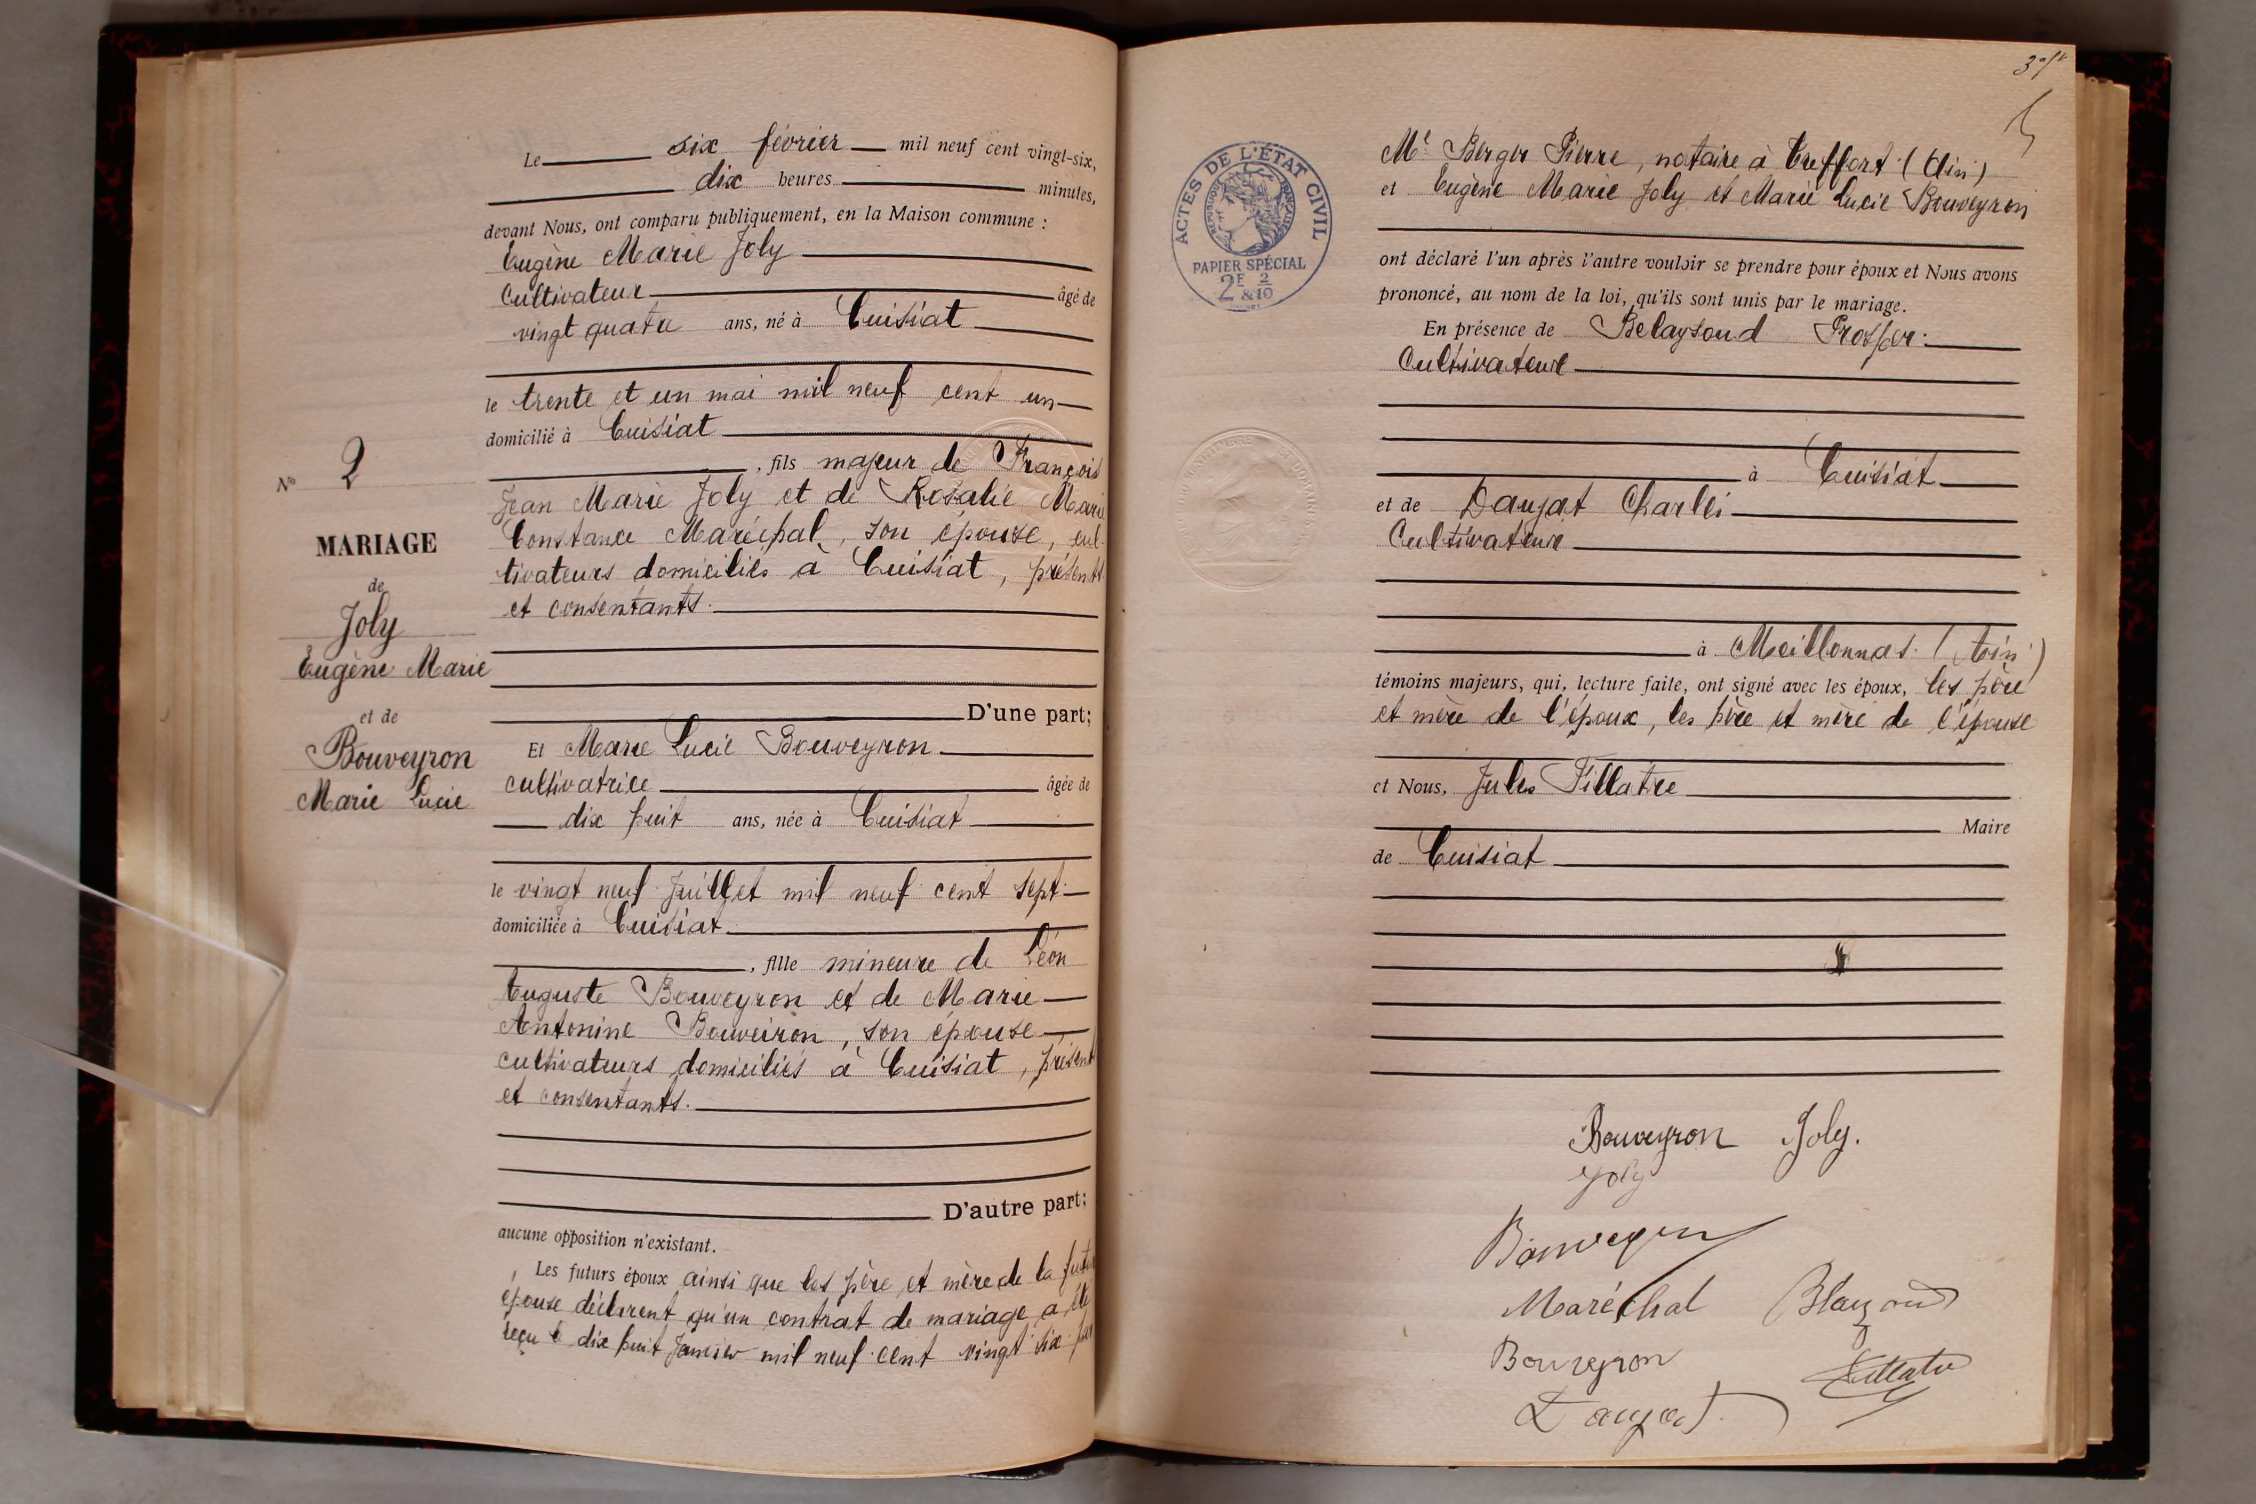 Le six février mil neuf cent vingt-six,
dix heures minutes,
devant Nous, ont comparu publiquement, en la Maison commune :
Eugène Marie Joly
Cultivateur âgé de
vingt quatre ans, né à Cuisiat
le trente et un mai mil neuf cent un
domicilié à Cuisiat
, fils majeur de François
Jean Marie Joly et de Rosalie Marie
Constance Maréchal, son épouse, cul
tivateurs domiciliés à Cuisiat, présents
et consentants.
D'une part;
Et Marie Lucie Bouveyron
cultivatrice âgée de
dix huit ans, née à Cuisiat
le vingt neuf Juillet mil neuf cent sept
domiciliée à Cuisiat
, fille mineure de Léon
Auguste Bouveyron et de Marie
Antonine Bouveiron, son épouse
cultivateurs domiciliés à Cuisiat, présent
et consentants.
D'autre part;
aucune opposition n'existant.
Les futurs époux ainsi que les père et mère de la future
épouse déclarent qu'un contrat de mariage a été
reçu le dix huit Janvier mil neuf cent vingt six par
No 2
MARIAGE
de
Joly
Eugène Marie
et de
Bouveyron
Marie Lucie
ACTES DE L'ÉTAT CIVIL
PAPIER SPÉCIAL
2F 2
&10
Me Berger Pierre, notaire à Treffort (Ain)
et Eugène Marie Joly et Marie Lucie Bouveyron
ont déclaré l'un après l'autre vouloir se prendre pour époux et Nous avons
prononcé, au nom de la loi, qu'ils sont unis par le mariage.
En présence de Belaysoud Prosper
Cultivateur
à Cuisiat
et de Daujat Charles
Cultivateur
à Meillonnas (Ain)
témoins majeurs, qui, lecture faite, ont signé avec les époux, les père
et mère de l'époux, les père et mère de l'épouse
et Nous, Jules Fillatre
Maire
de Cuisiat
Bouveyron Joly.
Joly
Bouveyron
Maréchal Blayzoud
Bouveyron Fillatre
Daujat